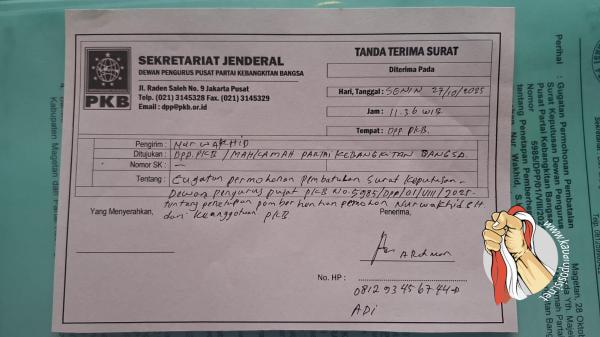 PKB
SEKRETARIAT JENDERAL
DEWAN PENGURUS PUSAT PARTAI KEBANGKITAN BANGSA
Jl. Raden Saleh No. 9 Jakarta Pusat
Telp. (021) 3145328 Fax. (021) 3145329
Email : dpp@pkb.or.id
TANDA TERIMA SURAT
Diterima Pada
Hari, Tanggal : SENIN 27/10/2025
Jam : 11.36 WIB
Tempat : DPP PKB.
Pengirim : NUR WAKHID
Ditujukan : DPP. PKB / MAHKAMAH PARTAI KEBANGKITAN BANGSA.
Nomor SK : —
Tentang : Gugatan permohonan pembatalan Surat Keputusan
Dewan pengurus pusat PKB No. 5985/DPP/01/VIII/2025-
tentang penetapan pemberhentian pemohon Nur wakhid SH.
dari keanggotaan PKB
Yang Menyerahkan,
Penerima,
No. HP :
ADI
www.kabarupdate.net
Perihal : Gugatan Permohonan Pembatalan
Surat Keputusan Dewan Pengurus
Pusat Partai Kebangkitan Bangsa
Nomor 5985/DPP/01/VIII/202
tentang Penetapan Pemberhe
Nur Wakhid, S
Magetan, 28 Oktob
Kabupaten Magetan dan